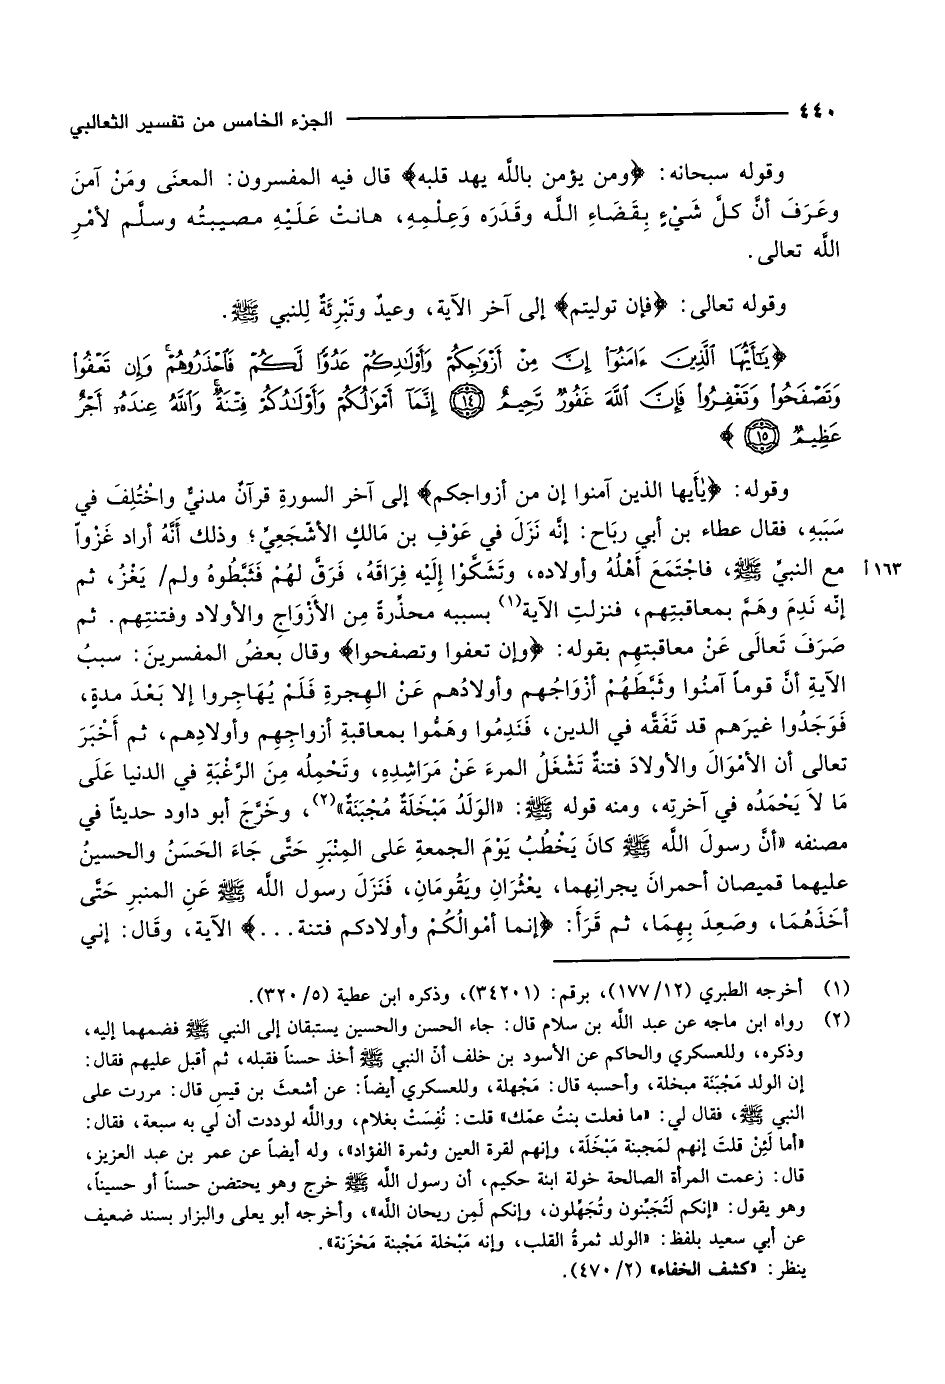 ٤٤٠ ــــــــــــــــــــ الجزء الخامس من تفسير الثعالبي
وقوله سبحانه: ﴿ومن يؤمن باللَّه يهد قلبه﴾ قال فيه المفسرون: المعنَى ومَنْ آمنَ
وعَرَفَ أنَّ كلَّ شَيْءٍ بِقَضَاءِ اللَّه وقَدَرَه وَعِلْمِهِ، هانتْ عَلَيْهِ مصيبتُه وسلَّم لأمْرِ
اللَّه تعالى.
وقوله تعالى: ﴿فإن توليتم﴾ إلى آخر الآية، وعيدٌ وتَبْرِئَةٌ لِلنبي ﷺ.
﴿يَٰٓأَيُّهَا ٱلَّذِينَ ءَامَنُوٓا۟ إِنَّ مِنْ أَزْوَٰجِكُمْ وَأَوْلَٰدِكُمْ عَدُوًّا لَّكُمْ فَٱحْذَرُوهُمْ ۚ وَإِن تَعْفُوا۟
وَتَصْفَحُوا۟ وَتَغْفِرُوا۟ فَإِنَّ ٱللَّهَ غَفُورٌ رَّحِيمٌ ﴿١٤﴾ إِنَّمَآ أَمْوَٰلُكُمْ وَأَوْلَٰدُكُمْ فِتْنَةٌ ۚ وَٱللَّهُ عِندَهُۥٓ أَجْرٌ
عَظِيمٌ ﴿١٥﴾ ﴾
وقوله: ﴿يٰأَيها الذين آمنوا إن من أزواجكم﴾ إلى آخر السورةِ قرآنٌ مدنيٌّ واخْتُلِفَ في
سَبَبِهِ، فقال عطاء بن أبي ربَاح: إنَّه نَزَلَ في عَوْفِ بن مَالكٍ الأشْجَعِيِّ؛ وذلك أَنَّهُ أراد غَزْواً
مع النبيِّ ﷺ، فاجْتَمَعَ أَهْلُهُ وأولاده، وتَشَكَّوْا إلَيْه فِرَاقَهُ، فَرَقَّ لهُمْ فَثَبَّطُوهُ ولم/ يَغْزُ، ثم ١٦٣أ
إنَّه نَدِمَ وهَمَّ بمعاقبتِهم، فنزلتِ الآية(١) بسببه محذِّرةً مِن الأَزْوَاجِ والأولاد وفتنتِهم. ثم
صَرَفَ تَعالَى عَنْ معاقبتهِم بقوله: ﴿وإن تعفوا وتصفحوا﴾ وقال بعضُ المفسرينَ: سببُ
الآيةِ أنَّ قوماً آمنُوا وثَبَّطَهُمْ أزْوَاجُهم وأولادُهم عَنْ الهِجرةِ فَلَمْ يُهَاجِروا إلا بَعْدَ مدةٍ،
فَوَجَدُوا غيرَهم قد تَفَقَّه في الدين، فَنَدِمُوا وهَمُّوا بمعاقبةِ أزواجِهم وأولادِهم، ثم أَخْبَرَ
تعالى أن الأمْوَالَ والأولادَ فتنةٌ تَشْغَلُ المرءَ عَنْ مَرَاشدِهِ، وتَحْمِلُه مِنَ الرَّغْبَةِ في الدنيا عَلَى
مَا لاَ يَحْمَدُه في آخرتِه، ومنه قوله ﷺ: «الوَلَدُ مَبْخَلَةٌ مُجْبَنَةٌ»(٢)، وخَرَّجَ أبو داود حديثاً في
مصنفه «أنَّ رسولَ اللَّه ﷺ كانَ يَخْطُبُ يَوْمَ الجمعةِ عَلى المِنْبَرِ حَتَّى جَاءَ الحَسَنُ والحسينُ
عليهما قميصان أحمرانَ يجرانِهما، يعْثُرَانِ ويَقُومَان، فَنَزَلَ رسول اللَّه ﷺ عَنِ المنبرِ حَتَّى
أخَذَهُمَا، وصَعِدَ بِهِمَا، ثم قَرَأَ: ﴿إنما أمْوالُكُمْ وأولادكم فتنة...﴾ الآية، وقَال: إني
(١) أخرجه الطبري (١٧٧/١٢)، برقم: (٣٤٢٠١)، وذكره ابن عطية (٣٢٠/٥).
(٢) رواه ابن ماجه عن عبد اللَّه بن سلام قال: جاء الحسن والحسين يستبقان إلى النبي ﷺ فضمهما إليه،
وذكره، وللعسكري والحاكم عن الأسود بن خلف أنّ النبي ﷺ أخذ حسناً فقبله، ثم أقبل عليهم فقال:
إن الولد مَجْبَنَة مبخلة، وأحسبه قال: مَجْهلة، وللعسكري أيضاً: عن أشعثَ بن قيسٍ قال: مررت على
النبي ﷺ، فقال لي: «ما فعلت بنتُ عمّك» قلت: نُفِسَتْ بغلام، وواللَّه لوددت أن لي به سبعة، فقال:
«أما لَئِنْ قلتَ إنهم لمَجبنة مَبْخَلَة، وإنهم لقرة العين وثمرة الفؤاد»، وله أيضاً عن عمر بن عبد العزيز،
قال: زعمت المرأة الصالحة خولة ابنة حكيم، أن رسول اللَّه ﷺ خرج وهو يحتضن حسناً أو حسيناً،
وهو يقول: «إنكم لَتُجَبِّنون وتُجَهِّلون، وإنكم لَمِن ريحان اللَّه»، وأخرجه أبو يعلى والبزار بسند ضعيف
عن أبي سعيد بلفظ: «الولد ثمرةُ القلب، وإنه مَبْخلة مَجْبنة مَحْزَنة».
ينظر: «كشف الخفاء» (٤٧٠/٢).